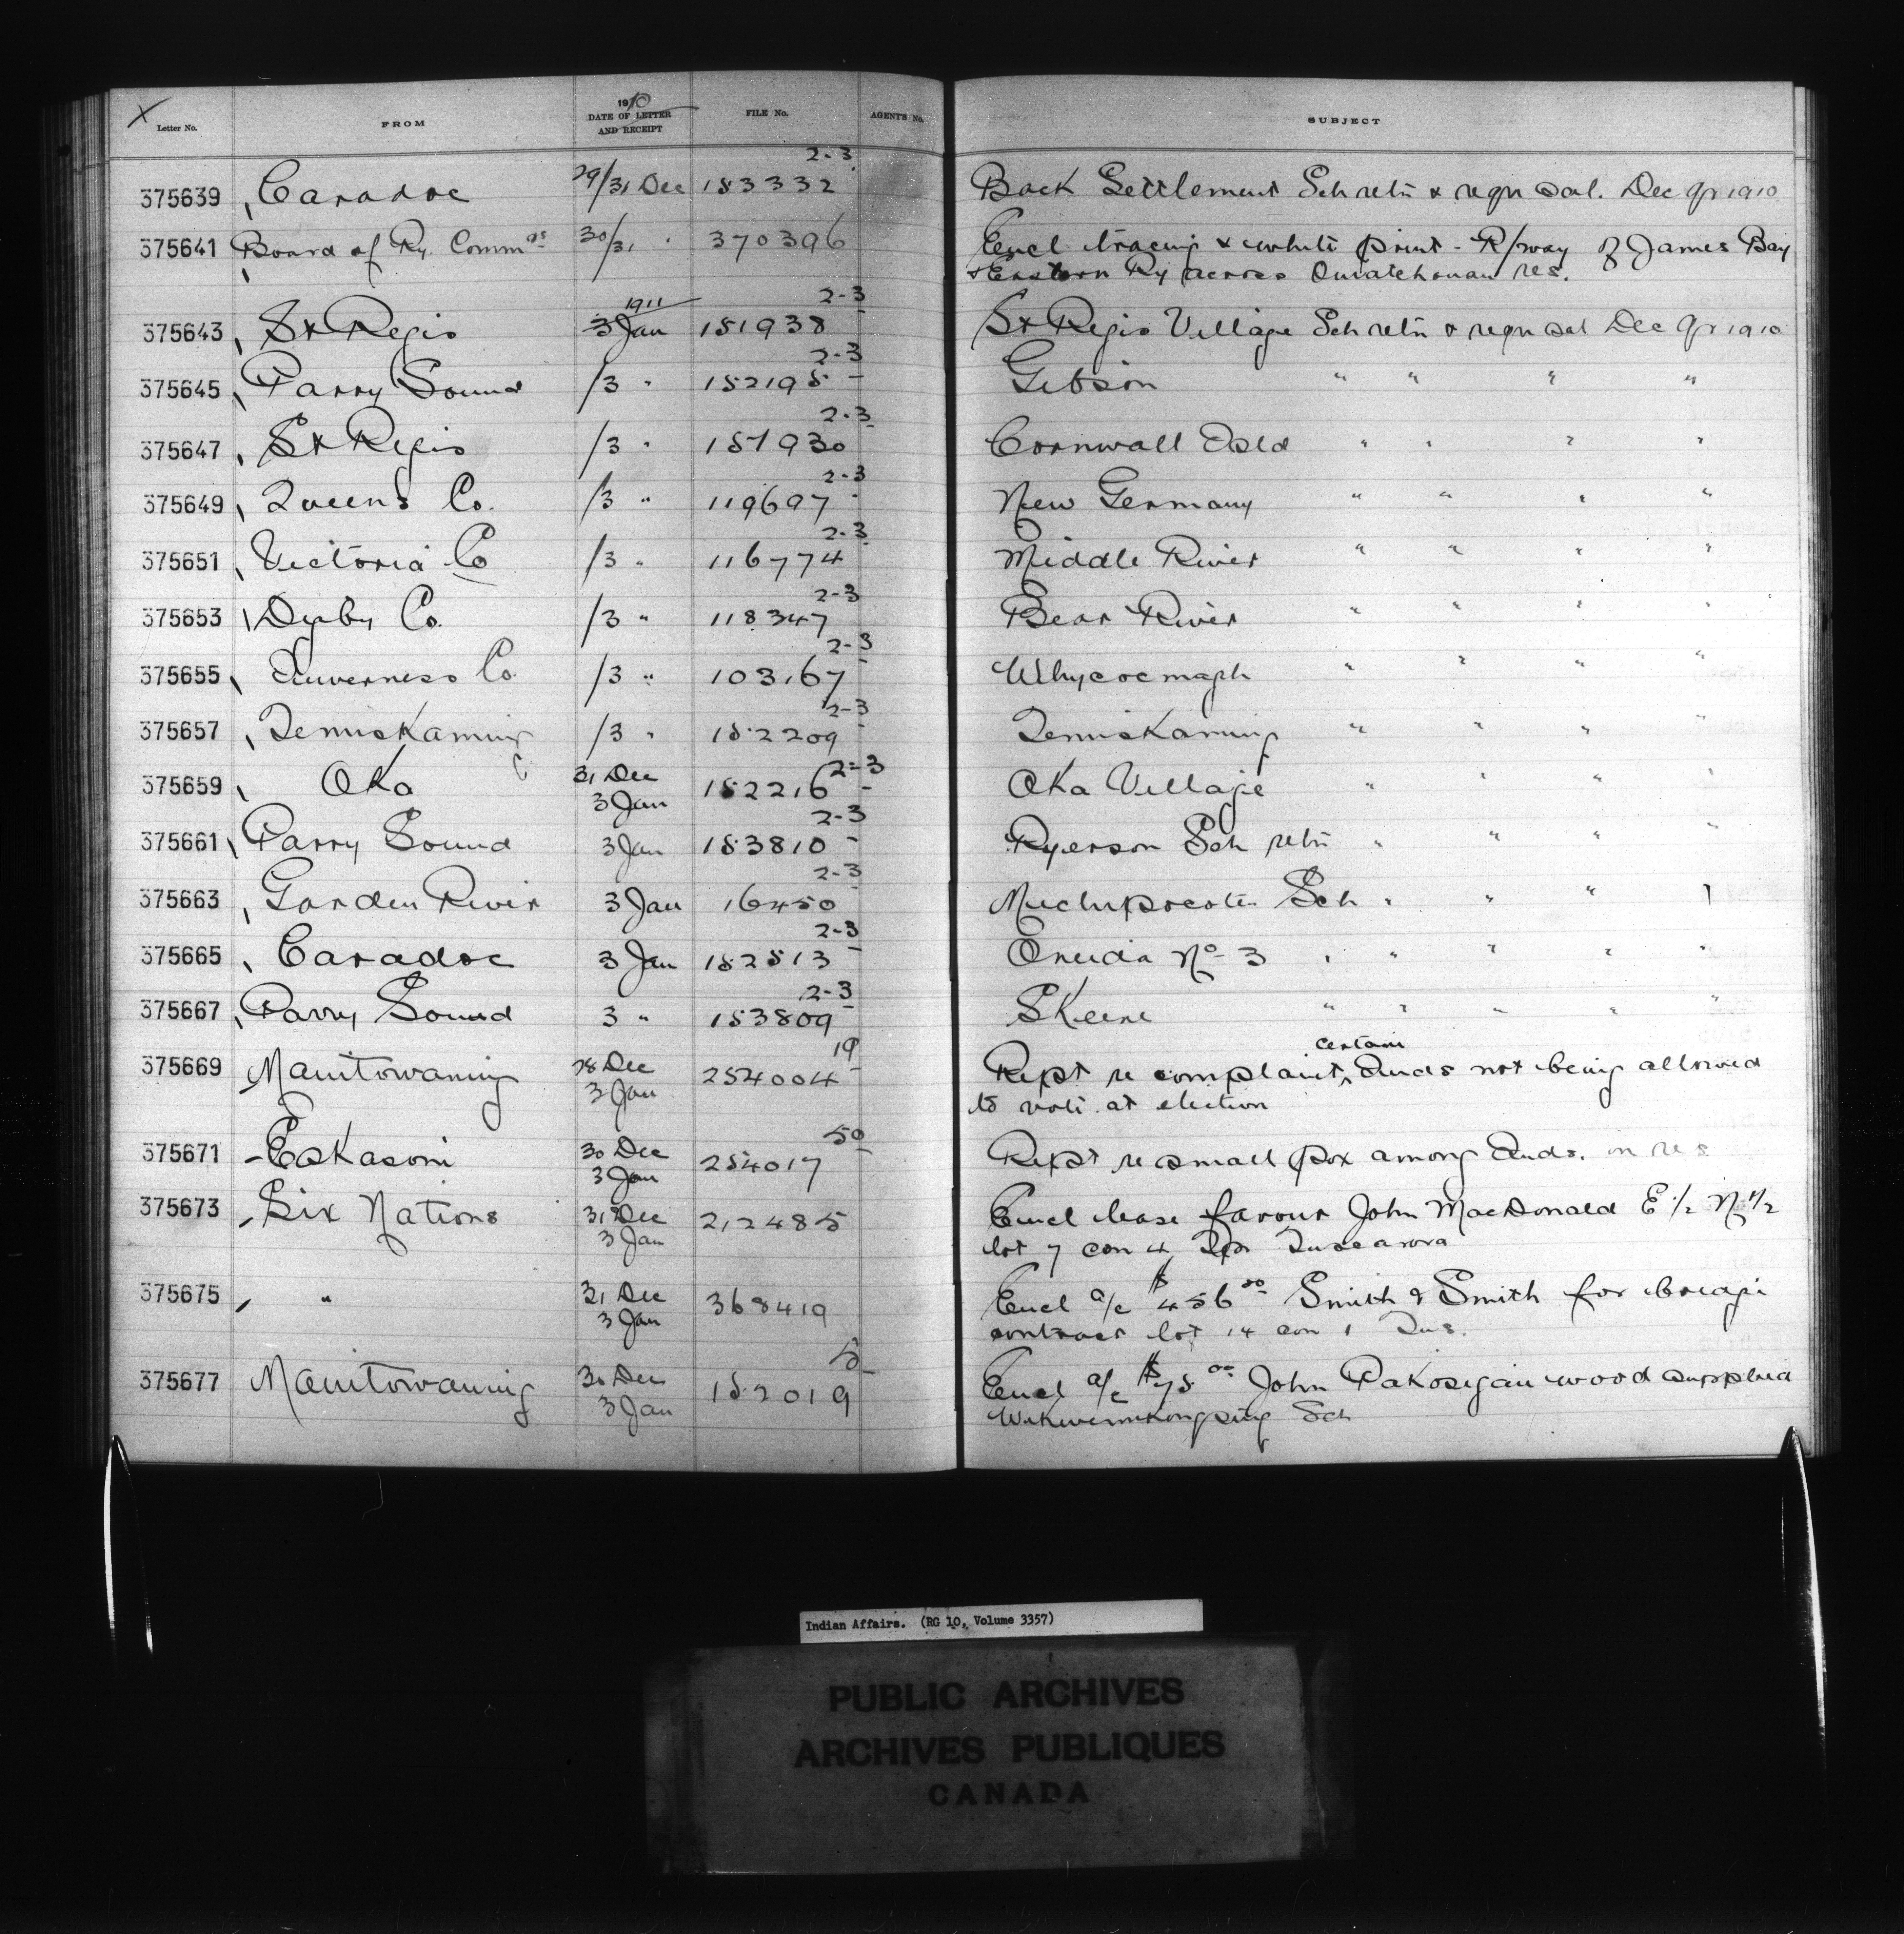 X Letter No. FROM 1910 DATE OF LETTER AND RECEIPT FILE No. AGENT'S No. SUBJECT
375639 Caradoc 29/31 Dec 153332 2-3 Back Settlement Sch retn & reqn sal. Dec qr 1910
375641 Board of Ry. Commrs 30/31 " 370396 Encl tracing & white print - R/way of James Bay
& Eastern Ry across Ouiatchouan res.
1911
375643 St Regis 3 Jan 151938 2-3 St Regis Village Sch retn & reqn sal Dec qr 1910
375645 Parry Sound /3 " 152195 2-3 Gibson " " " "
375647 St Regis /3 " 151930 2-3 Cornwall Isld " " " "
375649 Queens Co. /3 " 119697 2-3 New Germany " " " "
375651 Victoria Co /3 " 116774 2-3 Middle River " " " "
375653 Digby Co. /3 " 118347 2-3 Bear River " " " "
375655 Inverness Co. /3 " 103,167 2-3 Whycocmagh " " " "
375657 Temiskaming /3 " 152209 2-3 Temiskaming " " " "
375659 Oka 31 Dec 3 Jan 152216 2-3 Oka Village " " " "
375661 Parry Sound 3 Jan 153810 2-3 Ryerson Sch retn " " " "
375663 Garden River 3 Jan 16450 2-3 Michipicoten Sch " " " "
375665 Caradoc 3 Jan 152513 2-3 Oneida No 3 " " " " "
375667 Parry Sound 3 " 153809 2-3 Skeene " " " " "
375669 Manitowaning 28 Dec 3 Jan 254004 19 Rept re complaint certain Inds not being allowed
to vote at election
375671 Eskasoni 30 Dec 3 Jan 254017 50 Rept re small pox among Inds. on res
375673 Six Nations 31 Dec 3 Jan 212485 Encl lease favour John MacDonald E 1/2 N 1/2
lot 7 con 4 Tp Tuscarora
375675 " 31 Dec 3 Jan 368419 Encl a/c $456 00 Smith & Smith for bridge
contract lot 14 con 1 Tus.
375677 Manitowaning 30 Dec 3 Jan 152019 5 Encl a/c $75 00 John Pakosigan wood supplied
Wikwemikongsing Sch
Indian Affairs. (RG 10, Volume 3357)
PUBLIC ARCHIVES
ARCHIVES PUBLIQUES
CANADA